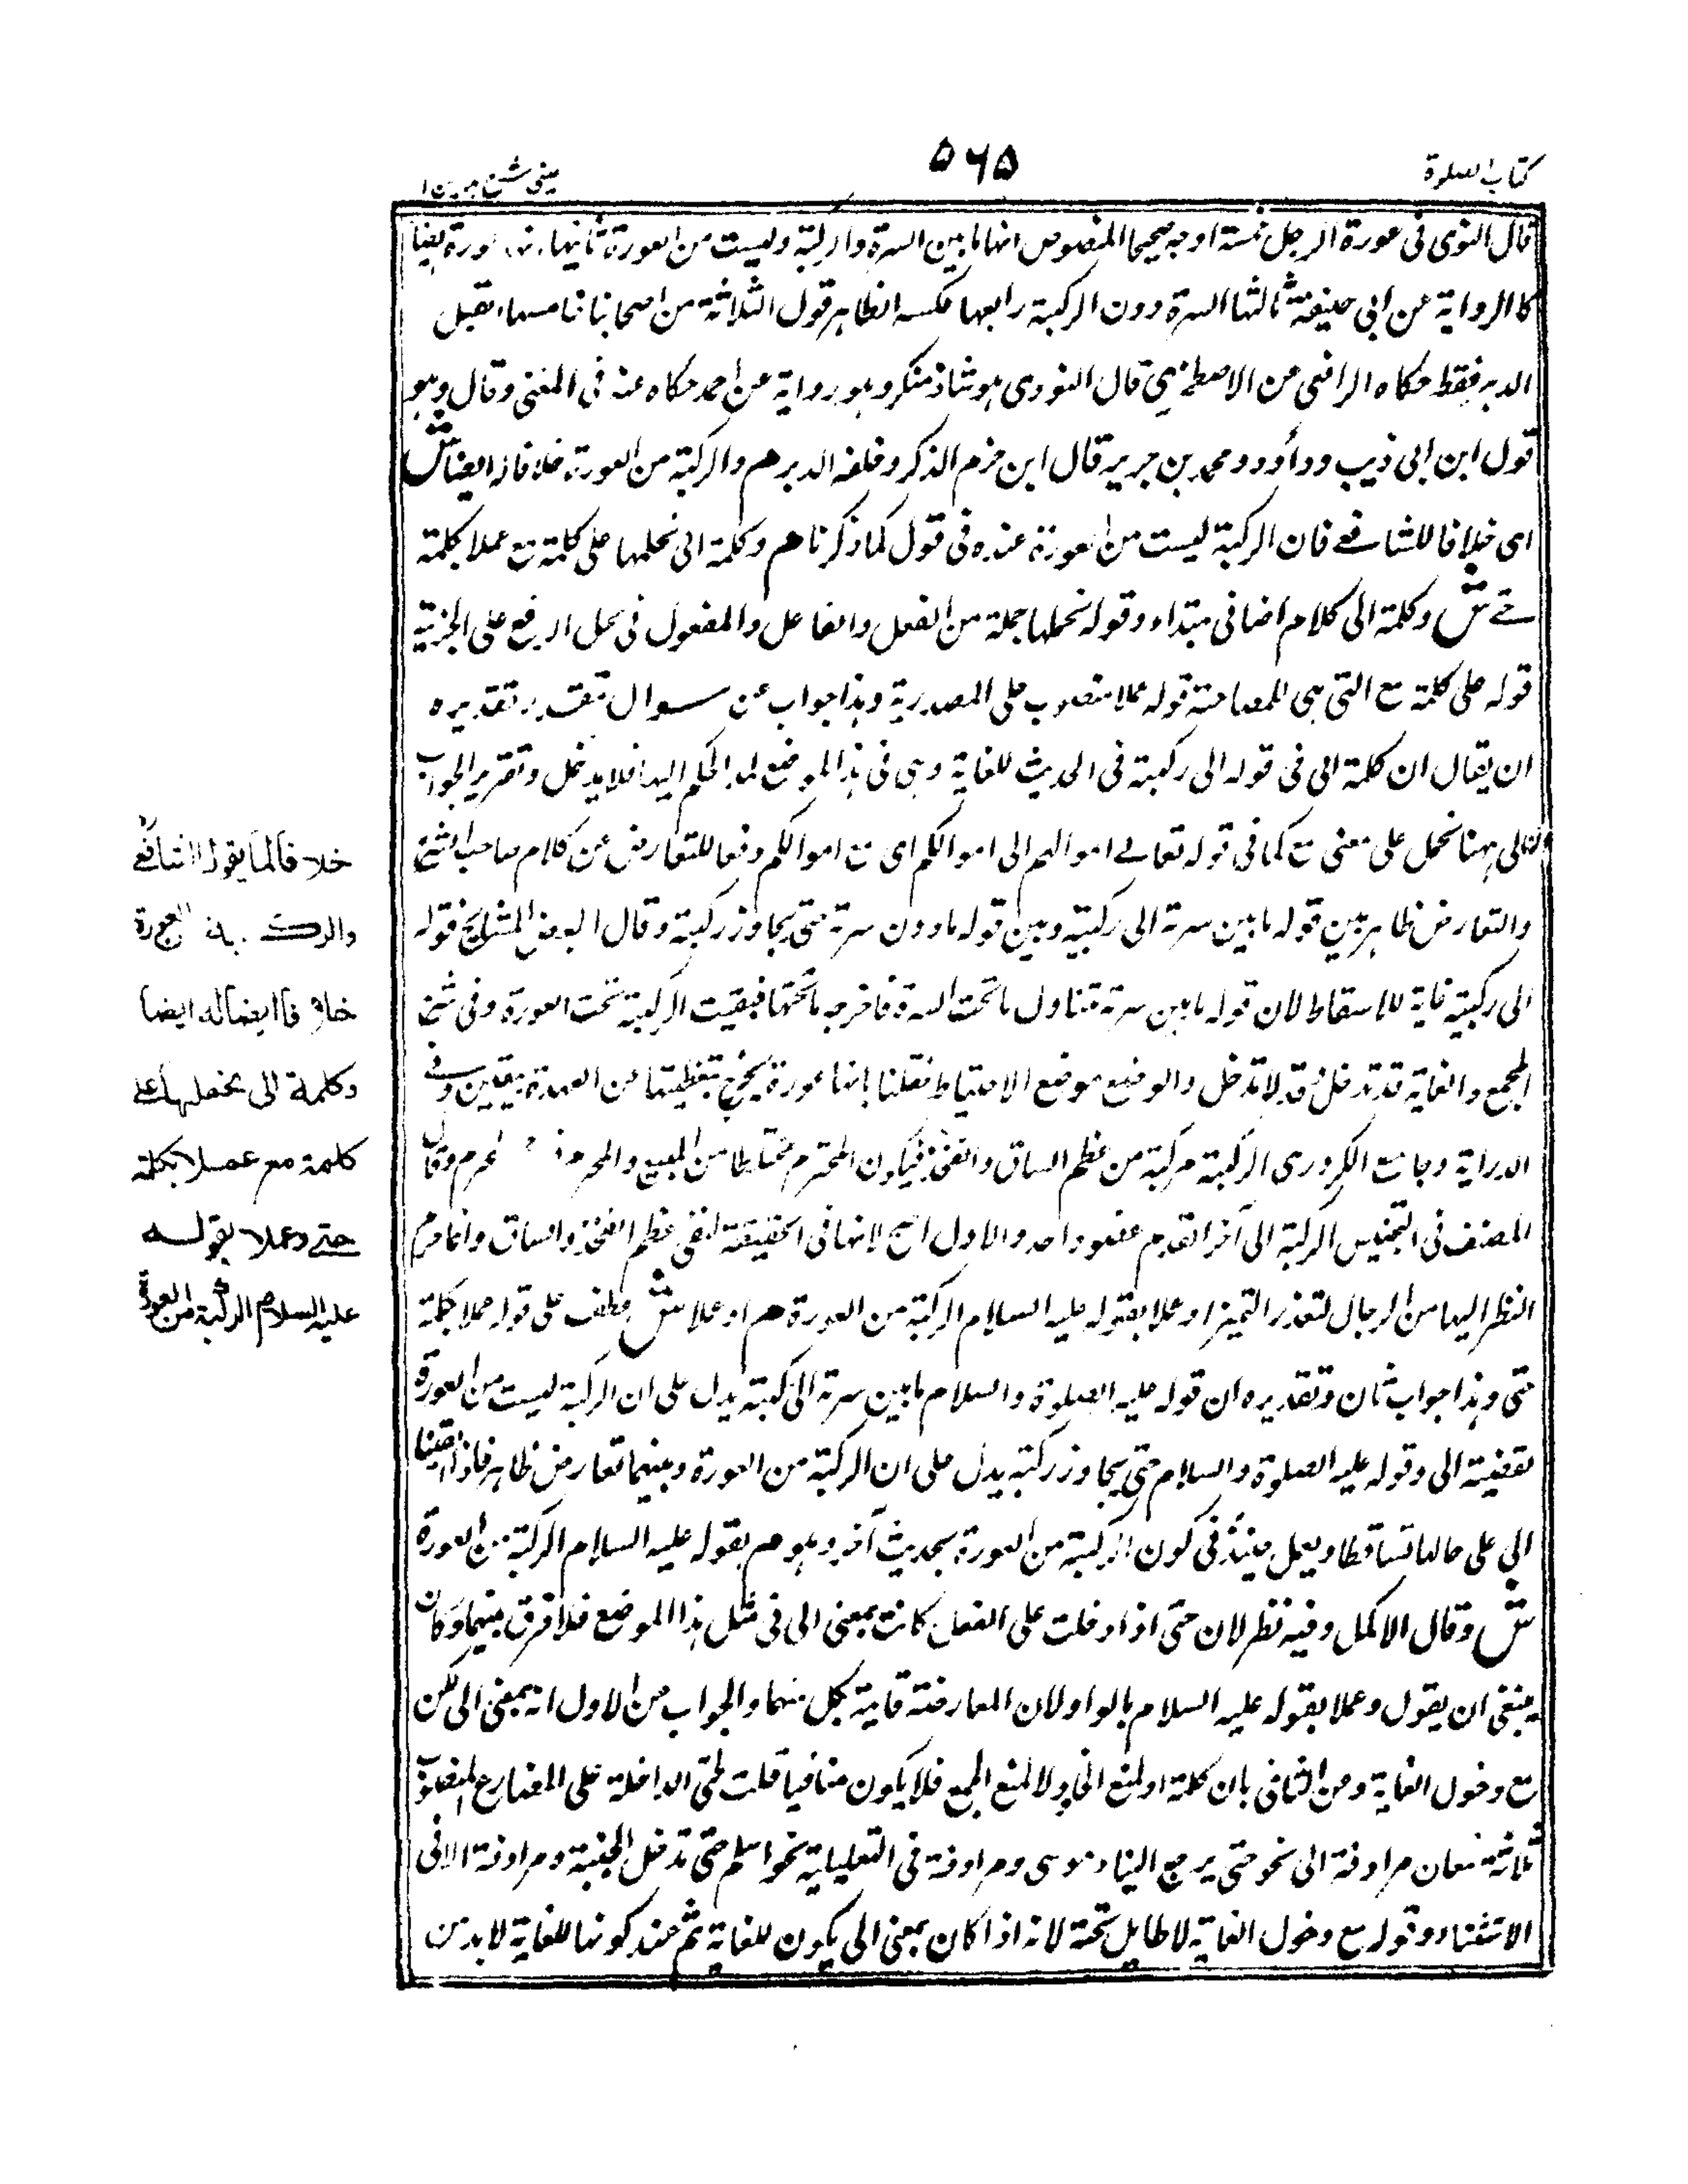 كتاب الصلوة
٥٦٥
عینی شرح
قال النووى فى عورة الرجل خمسة اوجه صحيحها المنصوص انها ما بين السرة والركبة وليست من العورة ثانيها عورة ايضا
كالرواية عن ابى حنيفة ثالثها السرة دون الركبة رابعها عكسه الظاهر قول الثلاثة من اصحابنا خامسها القبل
الدبر فقط حكاه الرافعى عن الاصطخرى قال النووى هو شاذ منكر وهو رواية عن احمد حكاه عنه فى المغنى وقال وهو
قول ابن ابى ذيب وداؤد ومحمد بن جرير قال ابن حزم الذكر وحلقه الدبر هم والركبة من العورة خلافا له ايضا ش
اى خلافا للشافعے فان الركبة ليست من العورة عنده فى قول كما ذكرنا هم وكلمة الى نحملها على كلمة مع عملا بكلمة
حتے ش وكلمة الى كلام اضافى مبتداء وقوله نحملها جملة من الفعل والفاعل والمفعول فى محل الرفع على الخبرية
قوله على كلمة مع التى هى للمصاحبة قوله عملا منصوب على المصدرية وهذا جواب عن سوال مقدر تقديره
ان يقال ان كلمة الى فى قوله الى ركبة فى الحديث للغاية وهى فى هذا الموضع لمد الحكم اليها فلا يدخل وتقرير الجواب
ان الى ههنا نحمل على معنى مع كما فى قوله تعالے اموالهم الى اموالكم اى مع اموالكم دفعا للتعارض عن كلام صاحب الشرع
والتعارض ظاهر بين قوله ما بين سرة الى ركبتيه وبين قوله ما دون سرة حتى يجاوز ركبتة وقال البعض المشايخ قوله
الى ركبتيه غاية للاسقاط لان قوله ما بين سرة متناول ما تحت السرة فاخرجه ما تحتها فبقيت الركبة تحت العورة وفى شرح
المجمع والغاية قد تدخل وقد لا تدخل والوضع موضع الاحتياط فقلنا بانها عورة يخرج بتغطيتها عن العهدة بيقين وفے
الدراية وجامع الكرورى الركبة مركبة من عظم الساق والفخذ فيكون المحترم مختلطا من المبيح والمحرم وقال
المصنف فى التجنيس الركبة الى آخر القدم عضو واحد والاول اصح لانها فى الحقيقة لتقى عظم الفخذ والساق وانما حرم
النظر اليها من الرجال لتعذر التميز او عملا بقوله عليه السلام الركبة من العورة هم او عملا ش عطف على قوله عملا بكلمة
حتى وهذا جواب ثان وتقديره ان قوله عليه الصلوة والسلام ما بين سرة الى ركبة يدل على ان الركبة ليست من العورة
لقضية الى وقوله عليه الصلوة والسلام حتى يجاوز ركبته يدل على ان الركبة من العورة وبينهما تعارض ظاهر فاذا ابقينا
الى على حالها تساقطا ويعمل حينئذ فى كون الركبة من العورة بحديث آخر وهو هم بقوله عليه السلام الركبة من العورة
ش وقال الاكمل وفيه نظر لان حتى اذا دخلت على الفعل كانت بمعنى الى فى مثل هذا الموضع فلا فرق بينهما وكان
ينبغى ان يقول وعملا بقوله عليه السلام بالواو لان المعارضة قاية بكل منهما والجواب من الاول انه بمعنى الى لكن
مع دخول الغاية ومن الثانى بان كلمة او لمنع الخلو لا لمنع الجمع فلا يكون منافيا قلت لحتى الداخلة على المضارع المنصوب
ثلاثة معان مرادفة الى نحو حتى يرجع الينا موسى ومرادفة فى التعليلية نحو اسلم حتى تدخل الجنبة ومرادفة الا فى
الاستثناء وقوله مع دخول الغاية لا طايل تحته لانه اذا كان بمعنى الى يكون للغاية ثم عند كونها للغاية لا بد من
خلافا لما يقوله الشافعے
والركبة من العورة
خلافا ايضا له ايضا
وكلمة الى نحملها علے
كلمة مع عملا بكلمة
حتے وعملا بقوله
عليه السلام الركبة من العورة